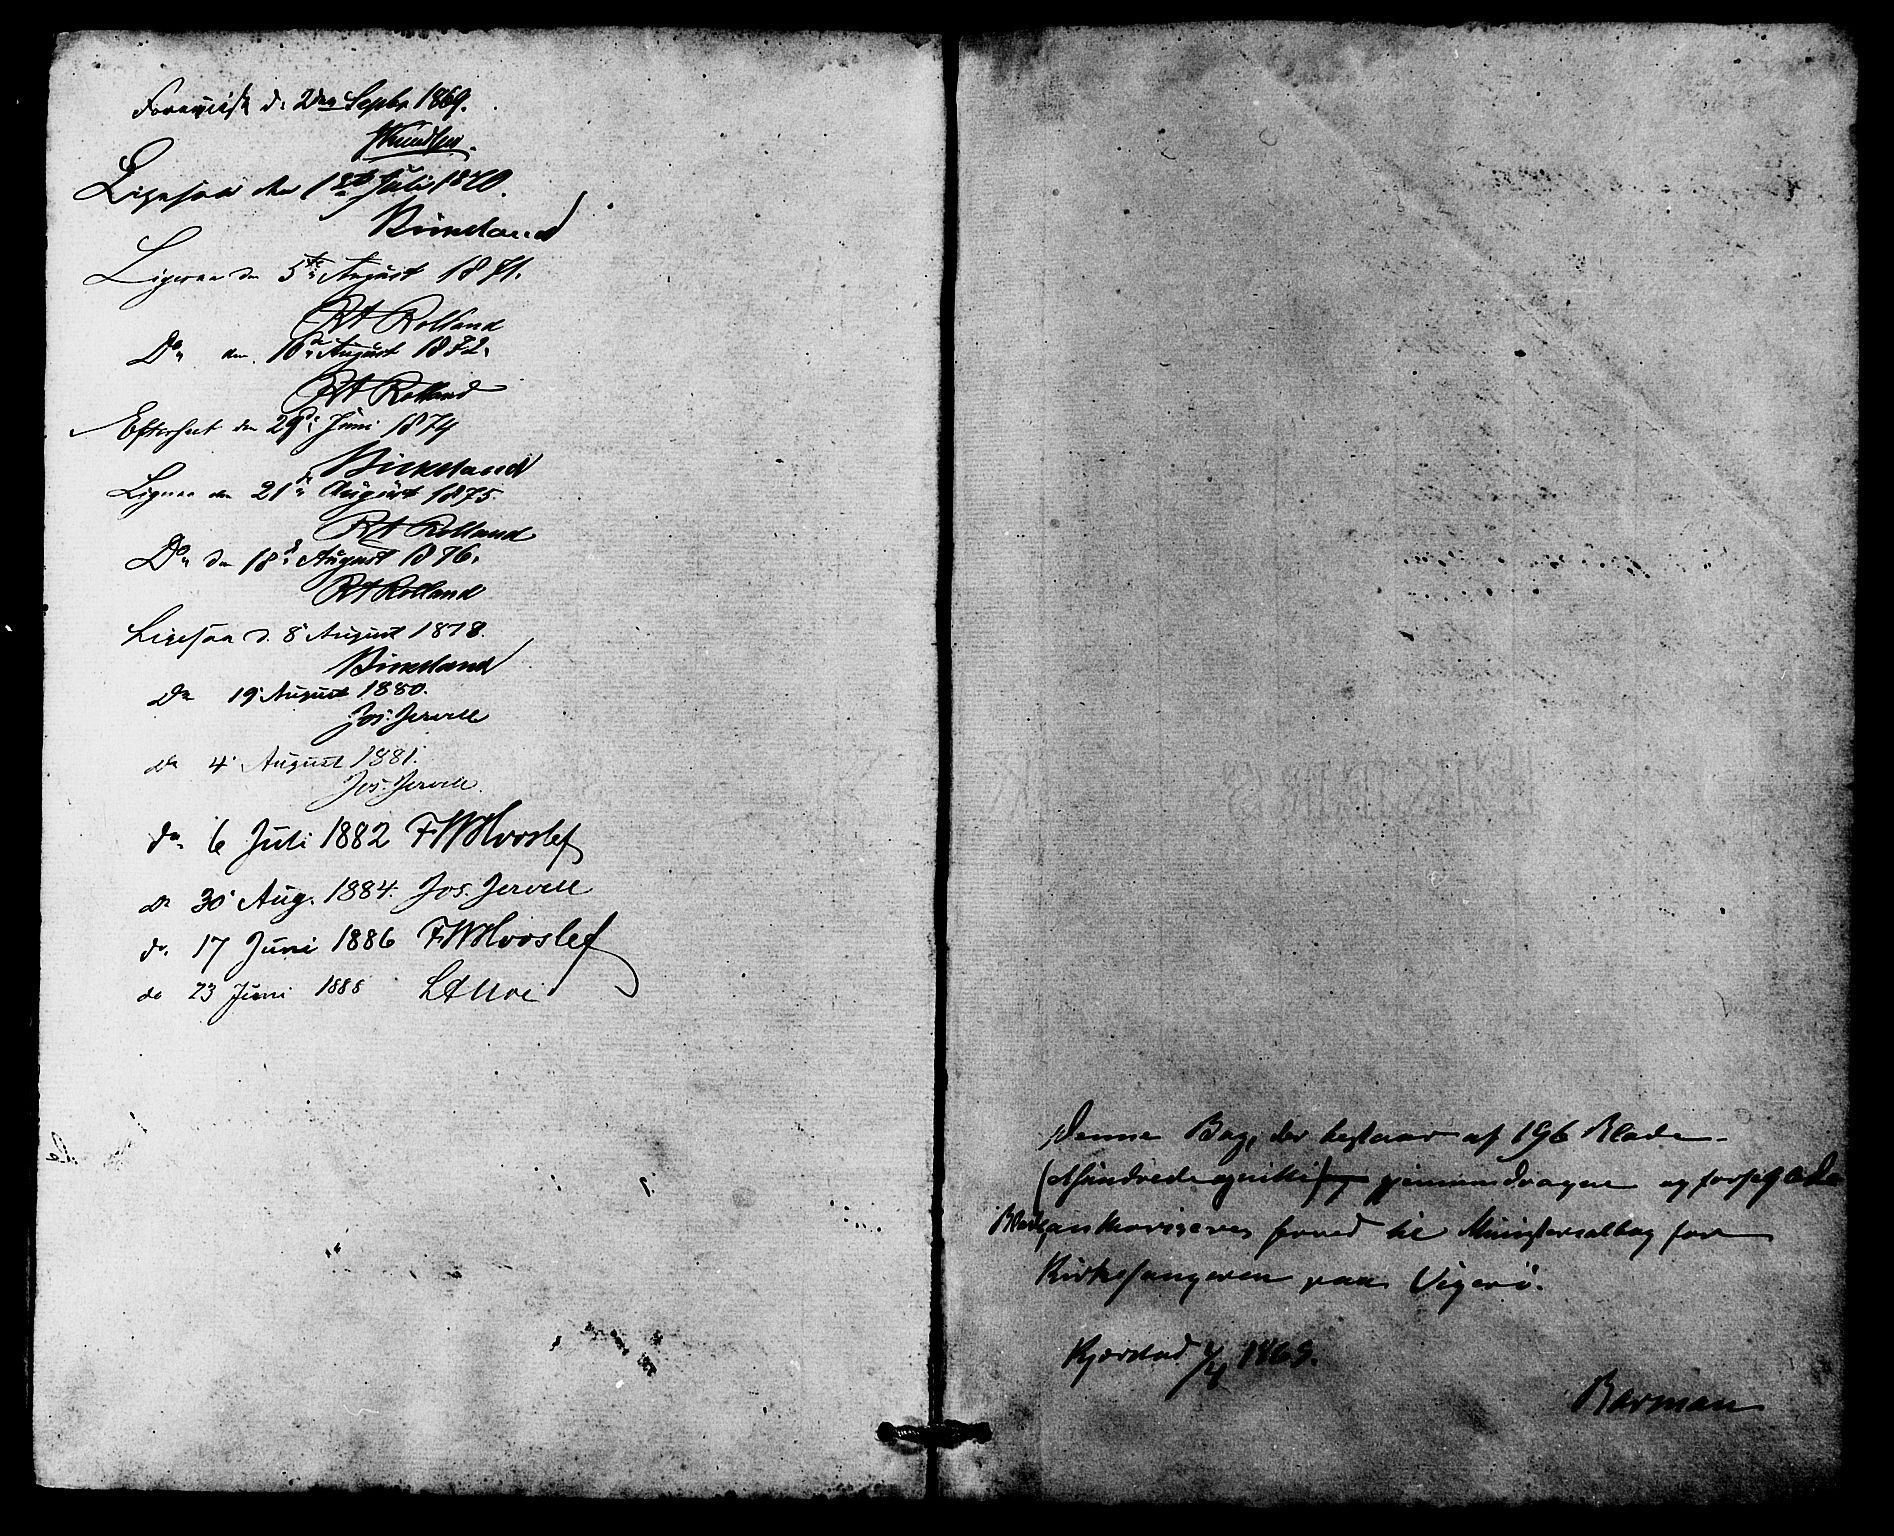 Forevist d: 2den Septbr 1869.
JKnudsen.
Ligesaa den 18de Juli 1870.
Birkeland
Ligesaa den 5te August 1871.
RA Rolland
Do den 10de August 1872.
RA Rolland
Efterseet den 29de Juni 1874
Birkeland
Ligesaa den 21de August 1875.
RA Rolland
Do den 18de August 1876.
RA Rolland
Ligesaa d. 8 August 1878.
Birkeland
Do 19 August 1880.
Jos: Jervell
do 4 August 1881.
Jos: Jervell.
do 6 Juli 1882 FWHvoslef
do 30 Aug. 1884. Jos. Jervell
do. 17 Juni 1886 FWHvoslef
do 23 Juni 1888
Denne Bog, der bestaar af 196 Blade
gjennemdragne og forseglede
authoriseres herved til Ministerialbog for
Kirkesangeren paa Vigerø.
Kjørstad 1869.
Barman